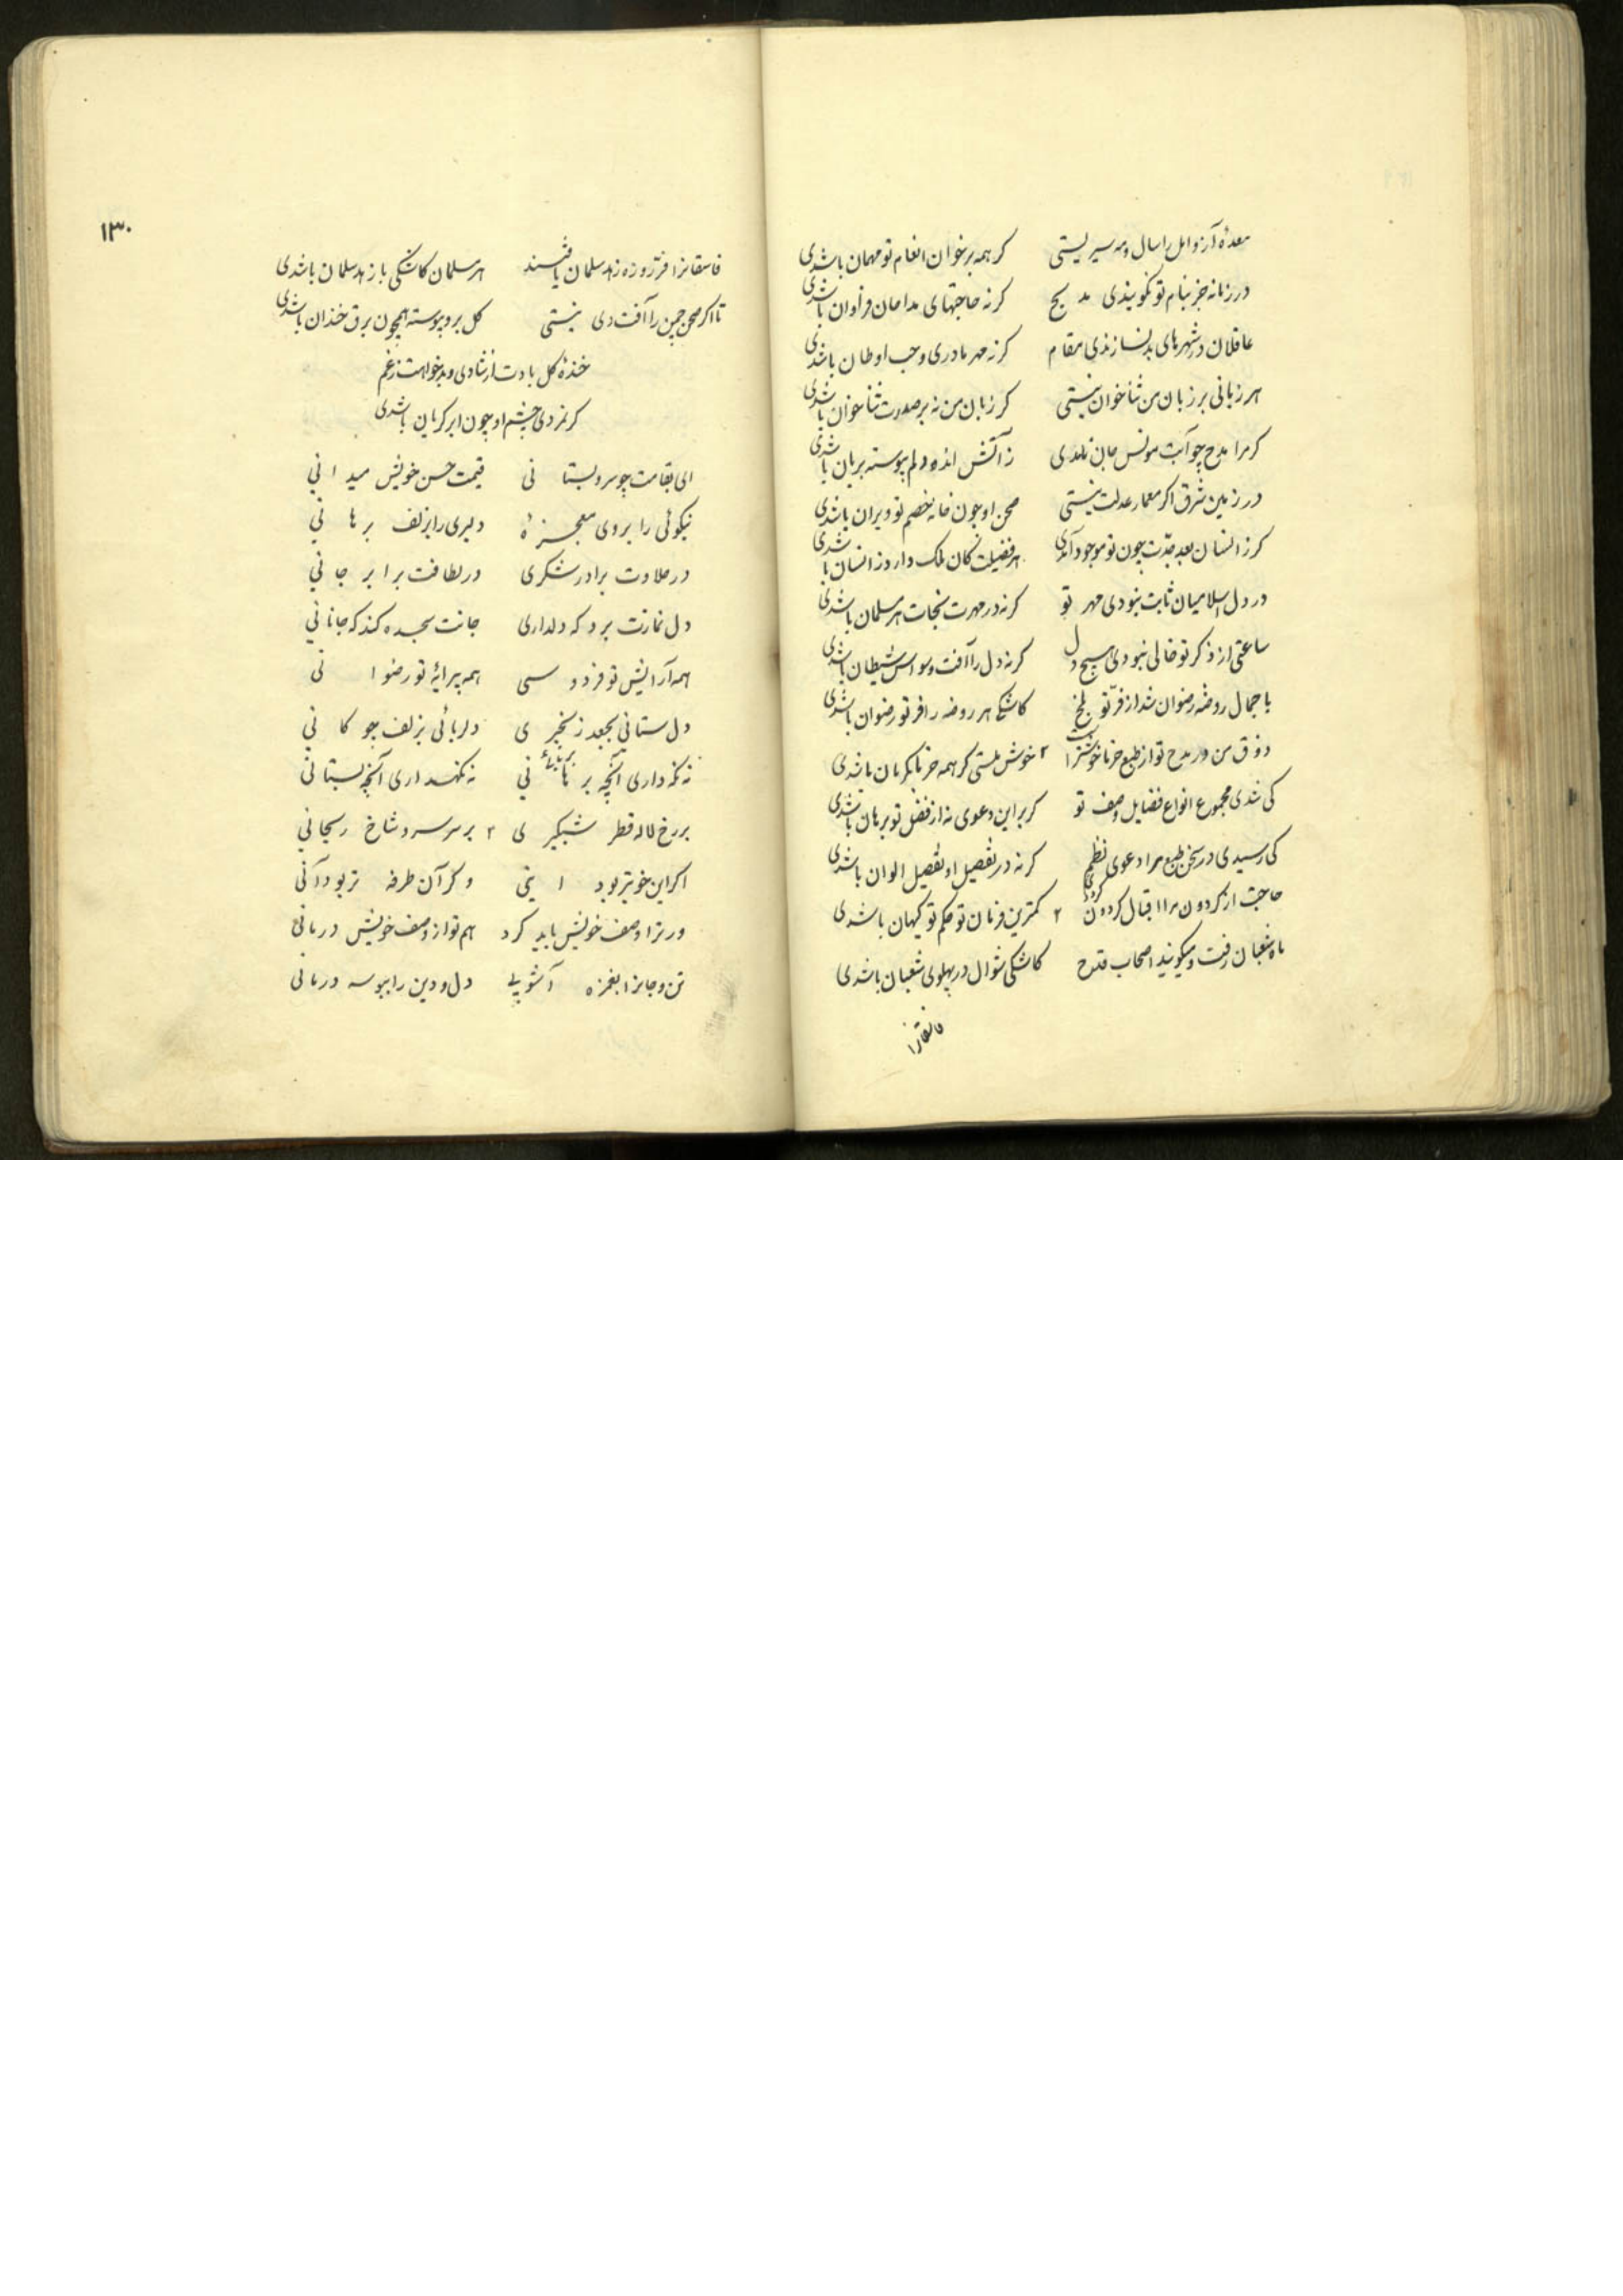 معدهٔ آز و امل را سال و مه سیر نیستی   کر همه بر خوان انعام تو مهمان باشدی
در زمانه جز بنام تو نکویندی مدیح   کر نه حاجتهای مداحان فراوان باشدی
عاقلان در شهرهای بد نسازندی مقام   کر نه مهر مادری و حب اوطان باشدی
هر زبانی بر زبان من ثنا خوان نیستی   کر زبان من نه بر صدرت ثنا خوان باشدی
کر مرا مدح چو آبت مونس جان نامدی   ز آتش انده دلم پیوسته بریان باشدی
در زمین شرق اکر معمار عدلت نیستی   صحن او چون خانه خصم تو ویران باشدی
کر ز انسان بعد جدّت چون تو موجود آمدی   هر فضیلت کان ملک دارد ز انسان باشدی
در دل اسلامیان ثابت نبودی مهر تو   کر نه در مهرت نجات هر مسلمان باشدی
ساعتی از ذکر تو خالی نبودی هیچ دل   کر نه دل را آفت وسواس شیطان باشدی
با جمال روضه رضوان شد از فرّ تو بلخ   کاشکی هر روضه را فر تو رضوان باشدی
ذوق من در مدح تو از طبع خرما خوشتر است   خوش منستی کر همه خرما بکرمان باشدی
کی شدی مجموع انواع فضایل وصف تو   کر بر این دعوی نه از فضل تو برهان باشدی
کی رسیدی در سخن طبع مرا دعوی نظم   کر نه در تفصیل او تفصیل الوان باشدی
حاجت از کردون مرا اقبال کردون کردیی   کمترین فرمان تو حکم تو کیهان باشدی
ماه شعبان رفت و میکویند اصحاب قدح   کاشکی شوال در پهلوی شعبان باشدی
فاسقانرا
۱۳۰
فاسقانرا فرّ روزه زهد سلمان یافتسند   هر مسلمان کاشکی با زهد سلمان باشدی
تا اکر صحن چمن را آفت دی نیستی   کل برو پیوسته همچون برق خندان باشدی
خندهٔ کل بادت از شادی و بدخواهت ز غم
کر نمردی چشم او چون ابر کریان باشدی
ای بقامت چو سرو بستانی   قیمت حسن خویش میدانی
نیکوئی را بروی معجزهٔ   دلبری را بزلف برهانی
در حلاوت برادر شکری   در لطافت برابر جانی
دل نمازت برد که دلداری   جانت سجده کند که جانانی
همه آرایش تو فردوسی   همه پیرایهٔ تو رضوانی
دل ستانی بجعد زنجیری   دلربائی بزلف چوکانی
نه نکه داری آنچه برهانی   نه نکهداری آنچه بستانی
بر رخ لاله قطر شبکیری   بر سر سرو شاخ ریحانی
اکر این خوبتر بود اینی   وکر آن طرفه تر بود آنی
ور ترا وصف خویش باید کرد   هم تو از وصف خویش درمانی
تن و جانرا بغمزه آشوبی   دل و دین را ببوسه درمانی